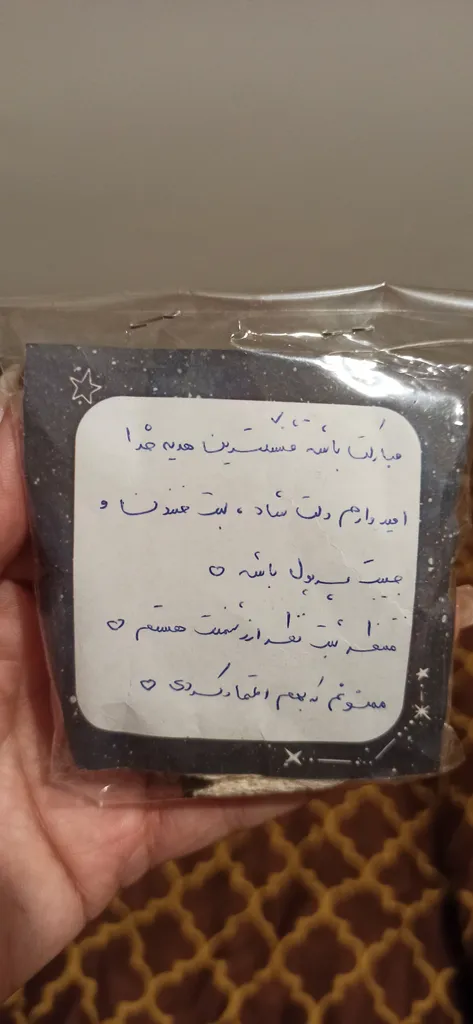 مبارکت باشه قشنگترین هدیه خدا
امیدوارم دلت شاد ، لبت خندون و
جیبت پرپول باشه
منتظر ثبت نظر ارزشمندت هستم
ممنونم که بهم اعتماد کردی